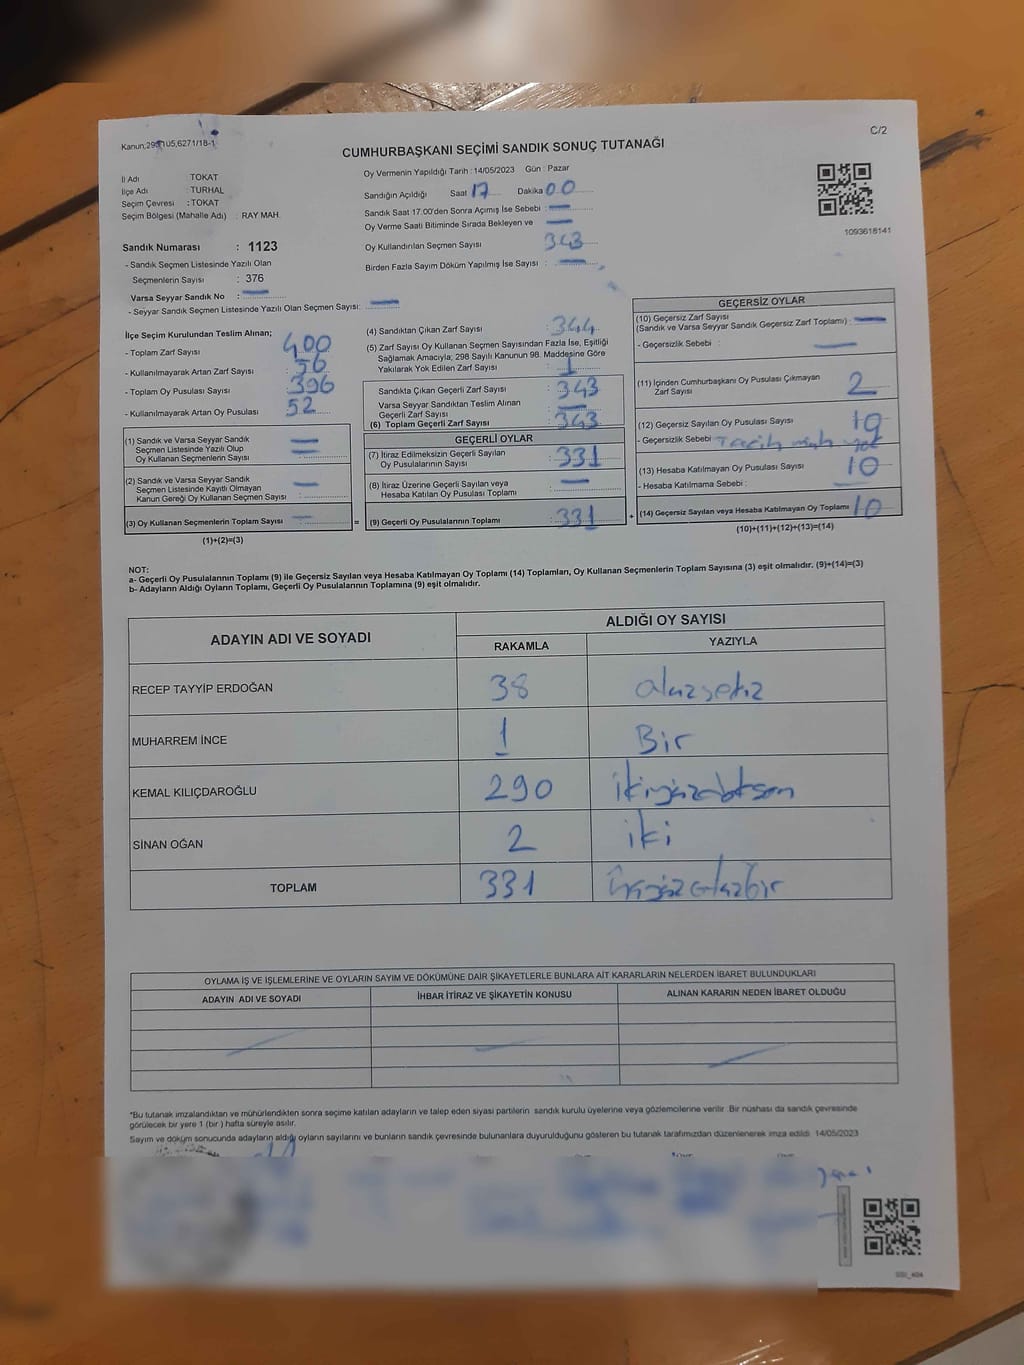 C/2
Kanun;298
105,6271/18-1
CUMHURBAŞKANI SEÇİMİ SANDIK SONUÇ TUTANAĞI
İl Adı : TOKAT
İlçe Adı : TURHAL
Seçim Çevresi : TOKAT
Seçim Bölgesi (Mahalle Adı) : RAY MAH.
Sandık Numarası : 1123
- Sandık Seçmen Listesinde Yazılı Olan
Seçmenlerin Sayısı : 376
Varsa Seyyar Sandık No :
- Seyyar Sandık Seçmen Listesinde Yazılı Olan Seçmen Sayısı:
Oy Vermenin Yapıldığı Tarih : 14/05/2023 Gün : Pazar
Sandığın Açıldığı Saat 17 Dakika 00
Sandık Saat 17.00'den Sonra Açımış İse Sebebi :
Oy Verme Saati Bitiminde Sırada Bekleyen ve
Oy Kullandırılan Seçmen Sayısı 343
Birden Fazla Sayım Döküm Yapılmış İse Sayısı :
1093618141
İlçe Seçim Kurulundan Teslim Alınan;
- Toplam Zarf Sayısı : 400
- Kullanılmayarak Artan Zarf Sayısı : 56
- Toplam Oy Pusulası Sayısı : 396
- Kullanılmayarak Artan Oy Pusulası : 52
(1) Sandık ve Varsa Seyyar Sandık
Seçmen Listesinde Yazılı Olup
Oy Kullanan Seçmenlerin Sayısı
(2) Sandık ve Varsa Seyyar Sandık
Seçmen Listesinde Kayıtlı Olmayan
Kanun Gereği Oy Kullanan Seçmen Sayısı :
(3) Oy Kullanan Seçmenlerin Toplam Sayısı :
(1)+(2)=(3)
(4) Sandıktan Çıkan Zarf Sayısı : 344
(5) Zarf Sayısı Oy Kullanan Seçmen Sayısından Fazla İse, Eşitliği
Sağlamak Amacıyla; 298 Sayılı Kanunun 98. Maddesine Göre
Yakılarak Yok Edilen Zarf Sayısı : 1
Sandıkta Çıkan Geçerli Zarf Sayısı : 343
Varsa Seyyar Sandıktan Teslim Alınan
Geçerli Zarf Sayısı :
(6) Toplam Geçerli Zarf Sayısı : 343
GEÇERLİ OYLAR
(7) İtiraz Edilmeksizin Geçerli Sayılan
Oy Pusulalarının Sayısı : 331
(8) İtiraz Üzerine Geçerli Sayılan veya
Hesaba Katılan Oy Pusulası Toplamı :
= (9) Geçerli Oy Pusulalarının Toplamı : 331 +
GEÇERSİZ OYLAR
(10) Geçersiz Zarf Sayısı
(Sandık ve Varsa Seyyar Sandık Geçersiz Zarf Toplamı) :
- Geçersizlik Sebebi :
(11) İçinden Cumhurbaşkanı Oy Pusulası Çıkmayan
Zarf Sayısı : 2
(12) Geçersiz Sayılan Oy Pusulası Sayısı :
- Geçersizlik Sebebi :
(13) Hesaba Katılmayan Oy Pusulası Sayısı : 10
- Hesaba Katılmama Sebebi :
(14) Geçersiz Sayılan veya Hesaba Katılmayan Oy Toplamı : 10
(10)+(11)+(12)+(13)=(14)
NOT:
a- Geçerli Oy Pusulalarının Toplamı (9) ile Geçersiz Sayılan veya Hesaba Katılmayan Oy Toplamı (14) Toplamları, Oy Kullanan Seçmenlerin Toplam Sayısına (3) eşit olmalıdır. (9)+(14)=(3)
b- Adayların Aldığı Oyların Toplamı, Geçerli Oy Pusulalarının Toplamına (9) eşit olmalıdır.
ADAYIN ADI VE SOYADI
ALDIĞI OY SAYISI
RAKAMLA YAZIYLA
RECEP TAYYİP ERDOĞAN 38 otuzsekiz
MUHARREM İNCE 1 Bir
KEMAL KILIÇDAROĞLU 290 ikiyüzdoksan
SİNAN OĞAN 2 iki
TOPLAM 331 üçyüzotuzbir
OYLAMA İŞ VE İŞLEMLERİNE VE OYLARIN SAYIM VE DÖKÜMÜNE DAİR ŞİKAYETLERLE BUNLARA AİT KARARLARIN NELERDEN İBARET BULUNDUKLARI
ADAYIN ADI VE SOYADI İHBAR İTİRAZ VE ŞİKAYETİN KONUSU ALINAN KARARIN NEDEN İBARET OLDUĞU
*Bu tutanak imzalandıktan ve mühürlendikten sonra seçime katılan adayların ve talep eden siyasi partilerin sandık kurulu üyelerine veya gözlemcilerine verilir. Bir nüshası da sandık çevresinde
görülecek bir yere 1 (bir) hafta süreyle asılır.
Sayım ve döküm sonucunda adayların aldığı oyların sayılarını ve bunların sandık çevresinde bulunanlara duyurulduğunu gösteren bu tutanak tarafımızdan düzenlenerek imza edildi. 14/05/2023